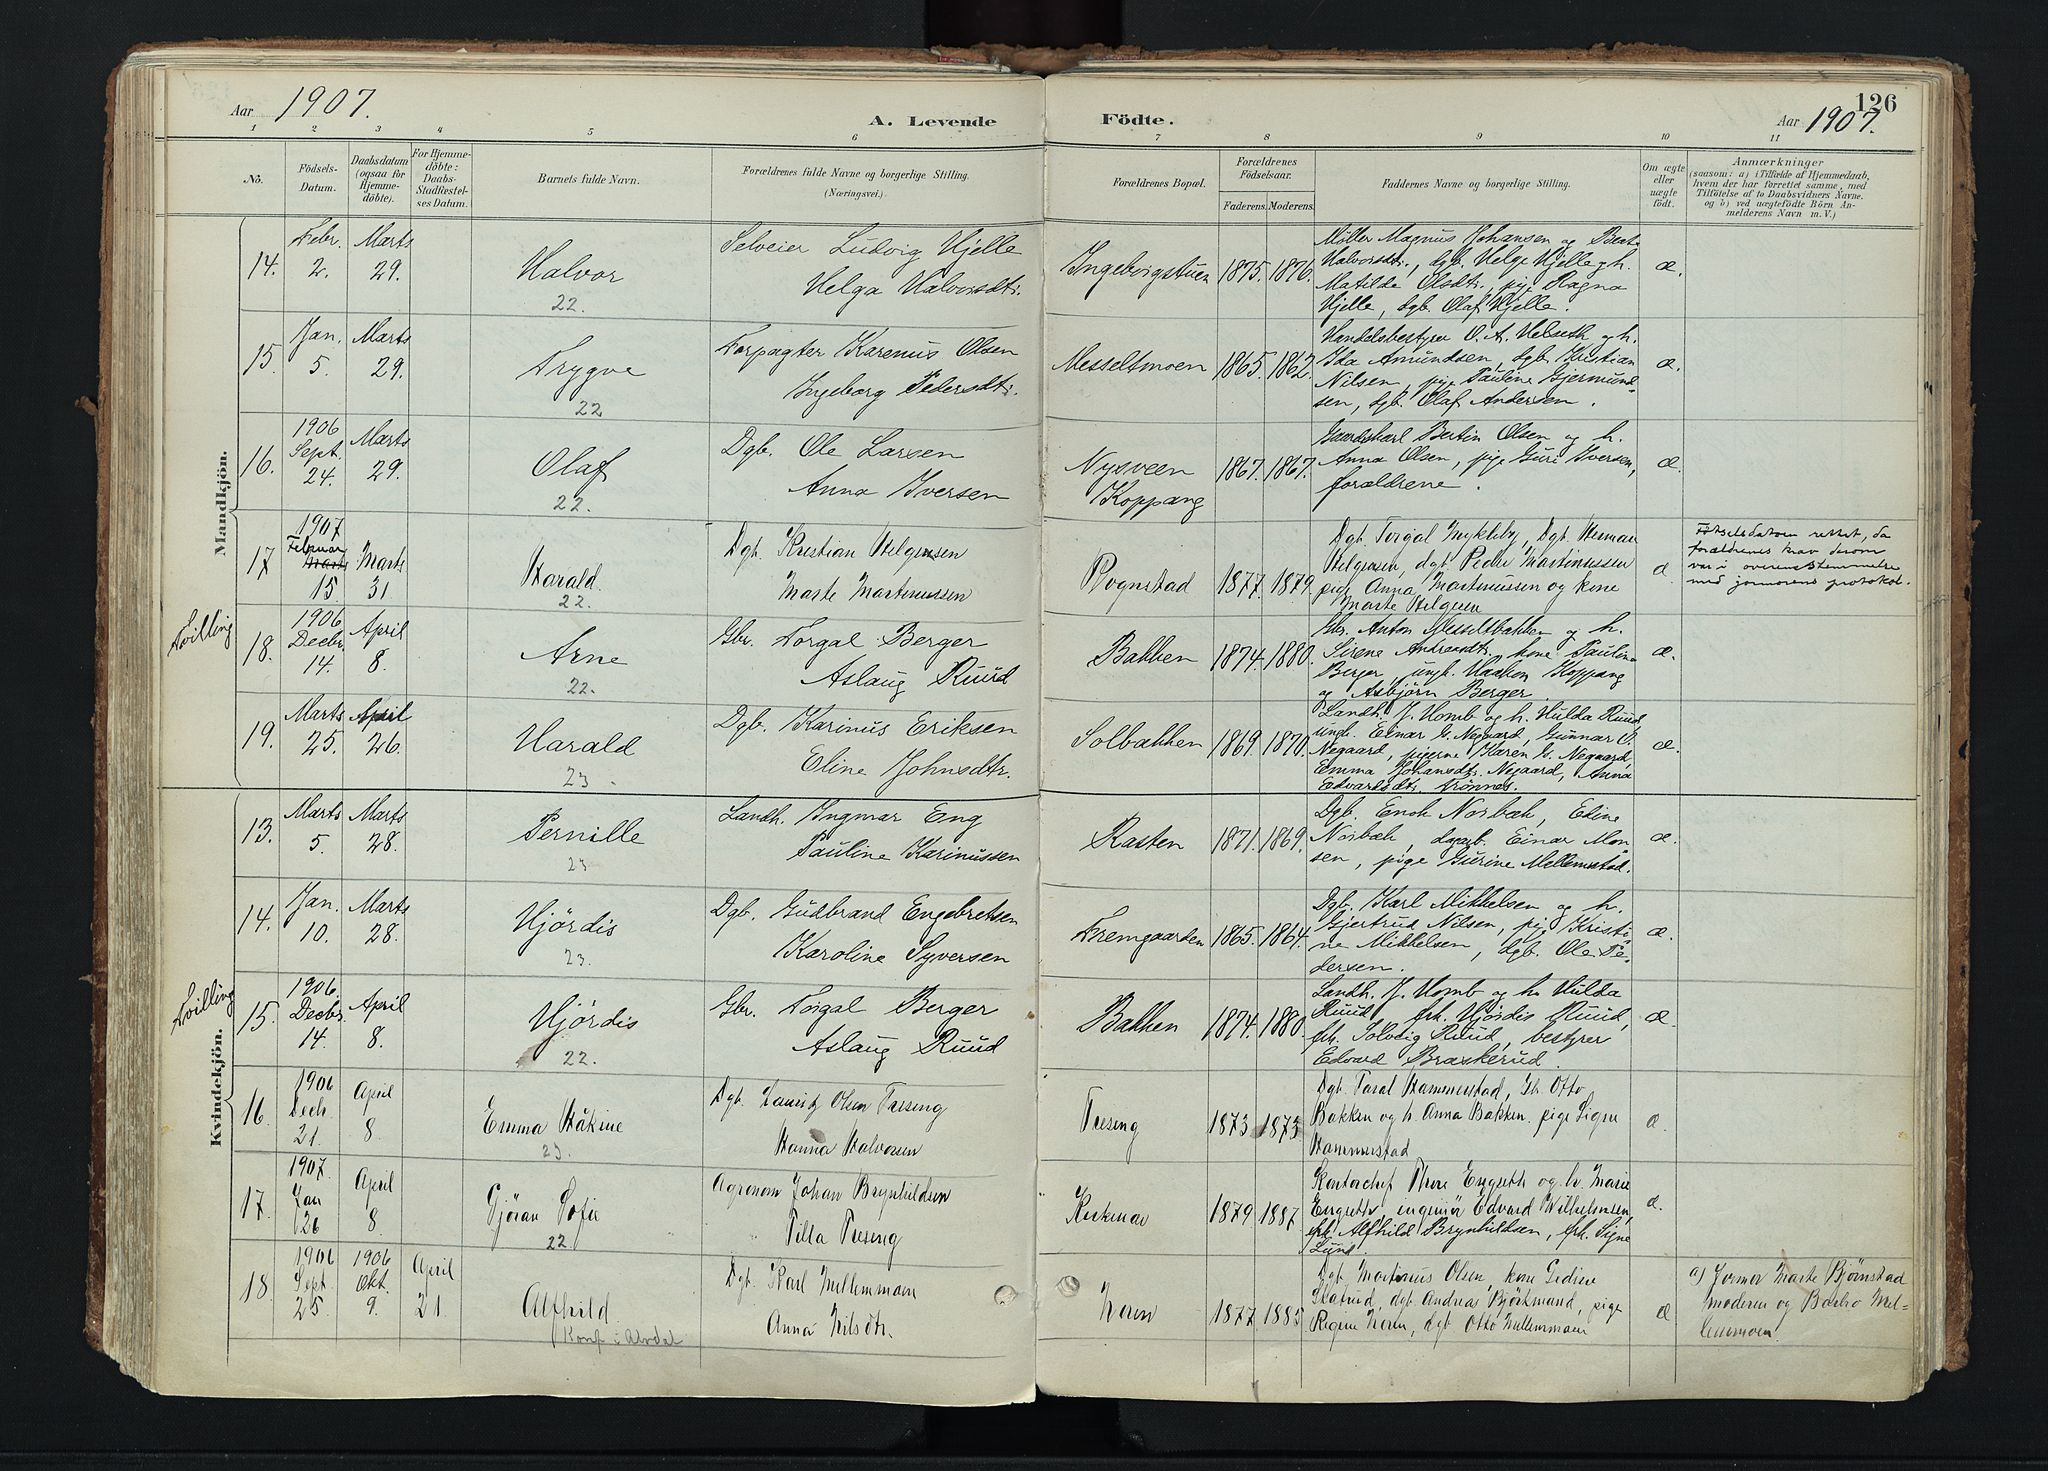 Aar 1907.
A. Levende
Födte.
Aar 1907.
126
1 2 3 4 5 6 7 8 9 10 11
No.
Födsels-
Datum.
Daabsdatum
(ogsaa for
Hjemme-
döbte).
For Hjemme-
döbte:
Daabs-
Stadfæstel-
ses Datum.
Barnets fulde Navn.
Forældrenes fulde Navne og borgerlige Stilling.
(Næringsvei.)
Forældrenes Bopæl.
Forældrenes
Födselsaar.
Faderens. Moderens.
Faddernes Navne og borgerlige Stilling.
Om ægte
eller
uægte
födt.
Anmærkninger
(saasom: a) i Tilfælde af Hjemmedaab,
hvem der har forrettet samme, med
Tilföielse af to Daabsvidners Navne.
og b) ved uægtefödte Börn An-
melderens Navn m. V.)
Mandkjön.
14.
Febr.
2.
Marts
29.
Halvor
22.
Selveier Ludvig Hjelle
Helga Halvorsdtr.
Ingeborgstuen
1875. 1876.
Møller Magnus Johansen og Berte
Halvorsdtr., dgb. Helge Hjelle og h.
Matilde Olsdtr., pige Ragna
Hjelle, dgb. Olaf Hjelle.
æ.
15.
Jan.
5.
Marts
29.
Trygve
22
Forpagter Karenus Olsen
Ingeborg Pedersdtr.
Messeltmoen
1865. 1862.
Handelsbestyrer O. A. Helseth og h.
Ida Amundsen, dgb. Kristian
Nilsen, pige Pauline Gjermund-
sen, dgb. Olaf Andersen.
æ.
16.
1906
Sept.
24.
Marts
29.
Olaf
22.
Dgb. Ole Larsen
Anna Iversen
Nysveen
Koppang
1867. 1867.
Gaardskarl Bertin Olsen og h.
Anna Olsen, pige Guri Iversen,
forældrene.
æ.
17
1907
Februar
Marts
15.
Marts
31
Harald.
22.
Dgb. Kristian Helgesen
Marte Martinussen
Rognstad
1877. 1879.
Dgb. Torgal Mykleby, Dgb. Herman
Helgesen, dgb. Peder Martinussen
pige Anna Martinussen og kone
Marte Helgesen
æ.
Fötselsdatoen rettet, da
forældrenes krav derom
var i overensstemmelse
med jormorens protokol.
Tvilling
18.
1906
Decbr.
14.
April
8.
Arne
22.
Gbr. Torgal Berger
Aslaug Ruud
Bakken
1874. 1880.
Gbr. Anton Messeltbakken og h.
Sirene Andreasdtr., kone Pauline
Berger, ungk. Haakon Koppang
og Asbjörn Berger.
æ.
19.
Marts
25.
April
26.
Harald
23
Dgb. Karinus Eriksen
Eline Johnsdtr.
Solbakken
1869. 1870.
Landh. J. Homb og h. Hulda Ruud,
ungk. Einar G. Negaard, Gunnar O.
Negaard, pigerne Karen G. Negaard,
Emma Johansdtr. Negaard, Anna
Edvardsdtr. Trönnes.
æ.
Kvindekjön.
13.
Marts
5.
Marts
28.
Pernille
23
Landh. Ingmar Eng
Pauline Karinussen
Rasten
1871. 1869.
Dgb. Enok Norbæk, Eline
Norbæk, dgarb. Einar Mon-
sen, pige Gurine Mellemstad.
æ.
14.
Jan.
10.
Marts
28.
Hjördis
23.
Dgb. Gudbrand Engebretsen
Karoline Syversen
Fremgaarden
1865. 1864.
Dgb. Karl Mikkelsen og h.
Gjertrud Nilsen, pige Kristi-
ne Mikkelsen, dgb. Ole Pe-
dersen.
æ.
Tvilling
15.
1906.
Decbr.
14.
April
8.
Hjördis
22.
Gbr. Torgal Berger
Aslaug Ruud
Bakken
1874. 1880.
Landh. J. Homb og h. Hulda
Ruud, frk. Hjördis Ruud,
frk. Solveig Ruud, bestyrer
Edvard Braskerud.
æ.
16
1906
Decb.
21.
April
8.
Emma Håkine
23.
Dgb. Lauritz Olsen Træseng
Hanna Halvorsen
Træseng
1873 1873
Dgb. Taral Hammerstad, Gbr. Otto
Bakken og h. Anna Bakken. pige Signe
Hammerstad
æ.
17.
1907.
Jan
26
April
8
Gjöran Sofie
22
Agronom Johan Brynhildsen
Tilla Træseng
1879 1887
Kontorchef Thore Engseth og h. Marie
Engseth, ingeniör Edvard Wilhelmsen,
frk. Alfhild Brynhildsen, frk. Signe
Lund.
æ.
18.
1906
Sept
25
1906
Okt.
9.
April
21
Alfhild
Konf. i Alvdal
Dgb. Karl Mellemmoen
Anna Nilsdtr.
Koren
1877. 1885
Dgb. Martinus Olsen, kone Gedine
Slatrud, dgb. Andreas Björkmand, pige
Regine Koren, dgb. Otto Mellemmoen
æ
a) Jormor Marte Bjørnstad
moderen og Barbro Mel-
lemmoen.